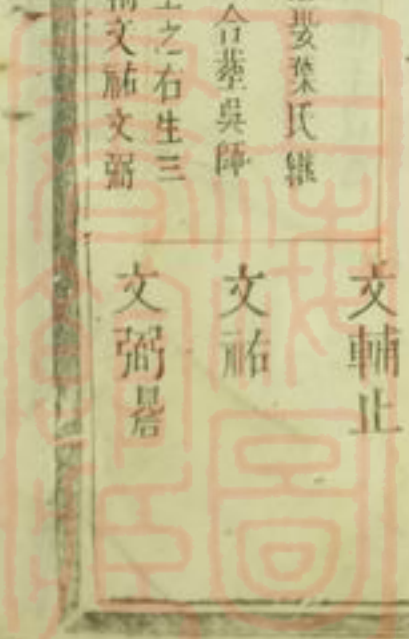 娶葉氏継
合塟吳師
之右生三
文祐文弼
文輔止
文祐
文弼